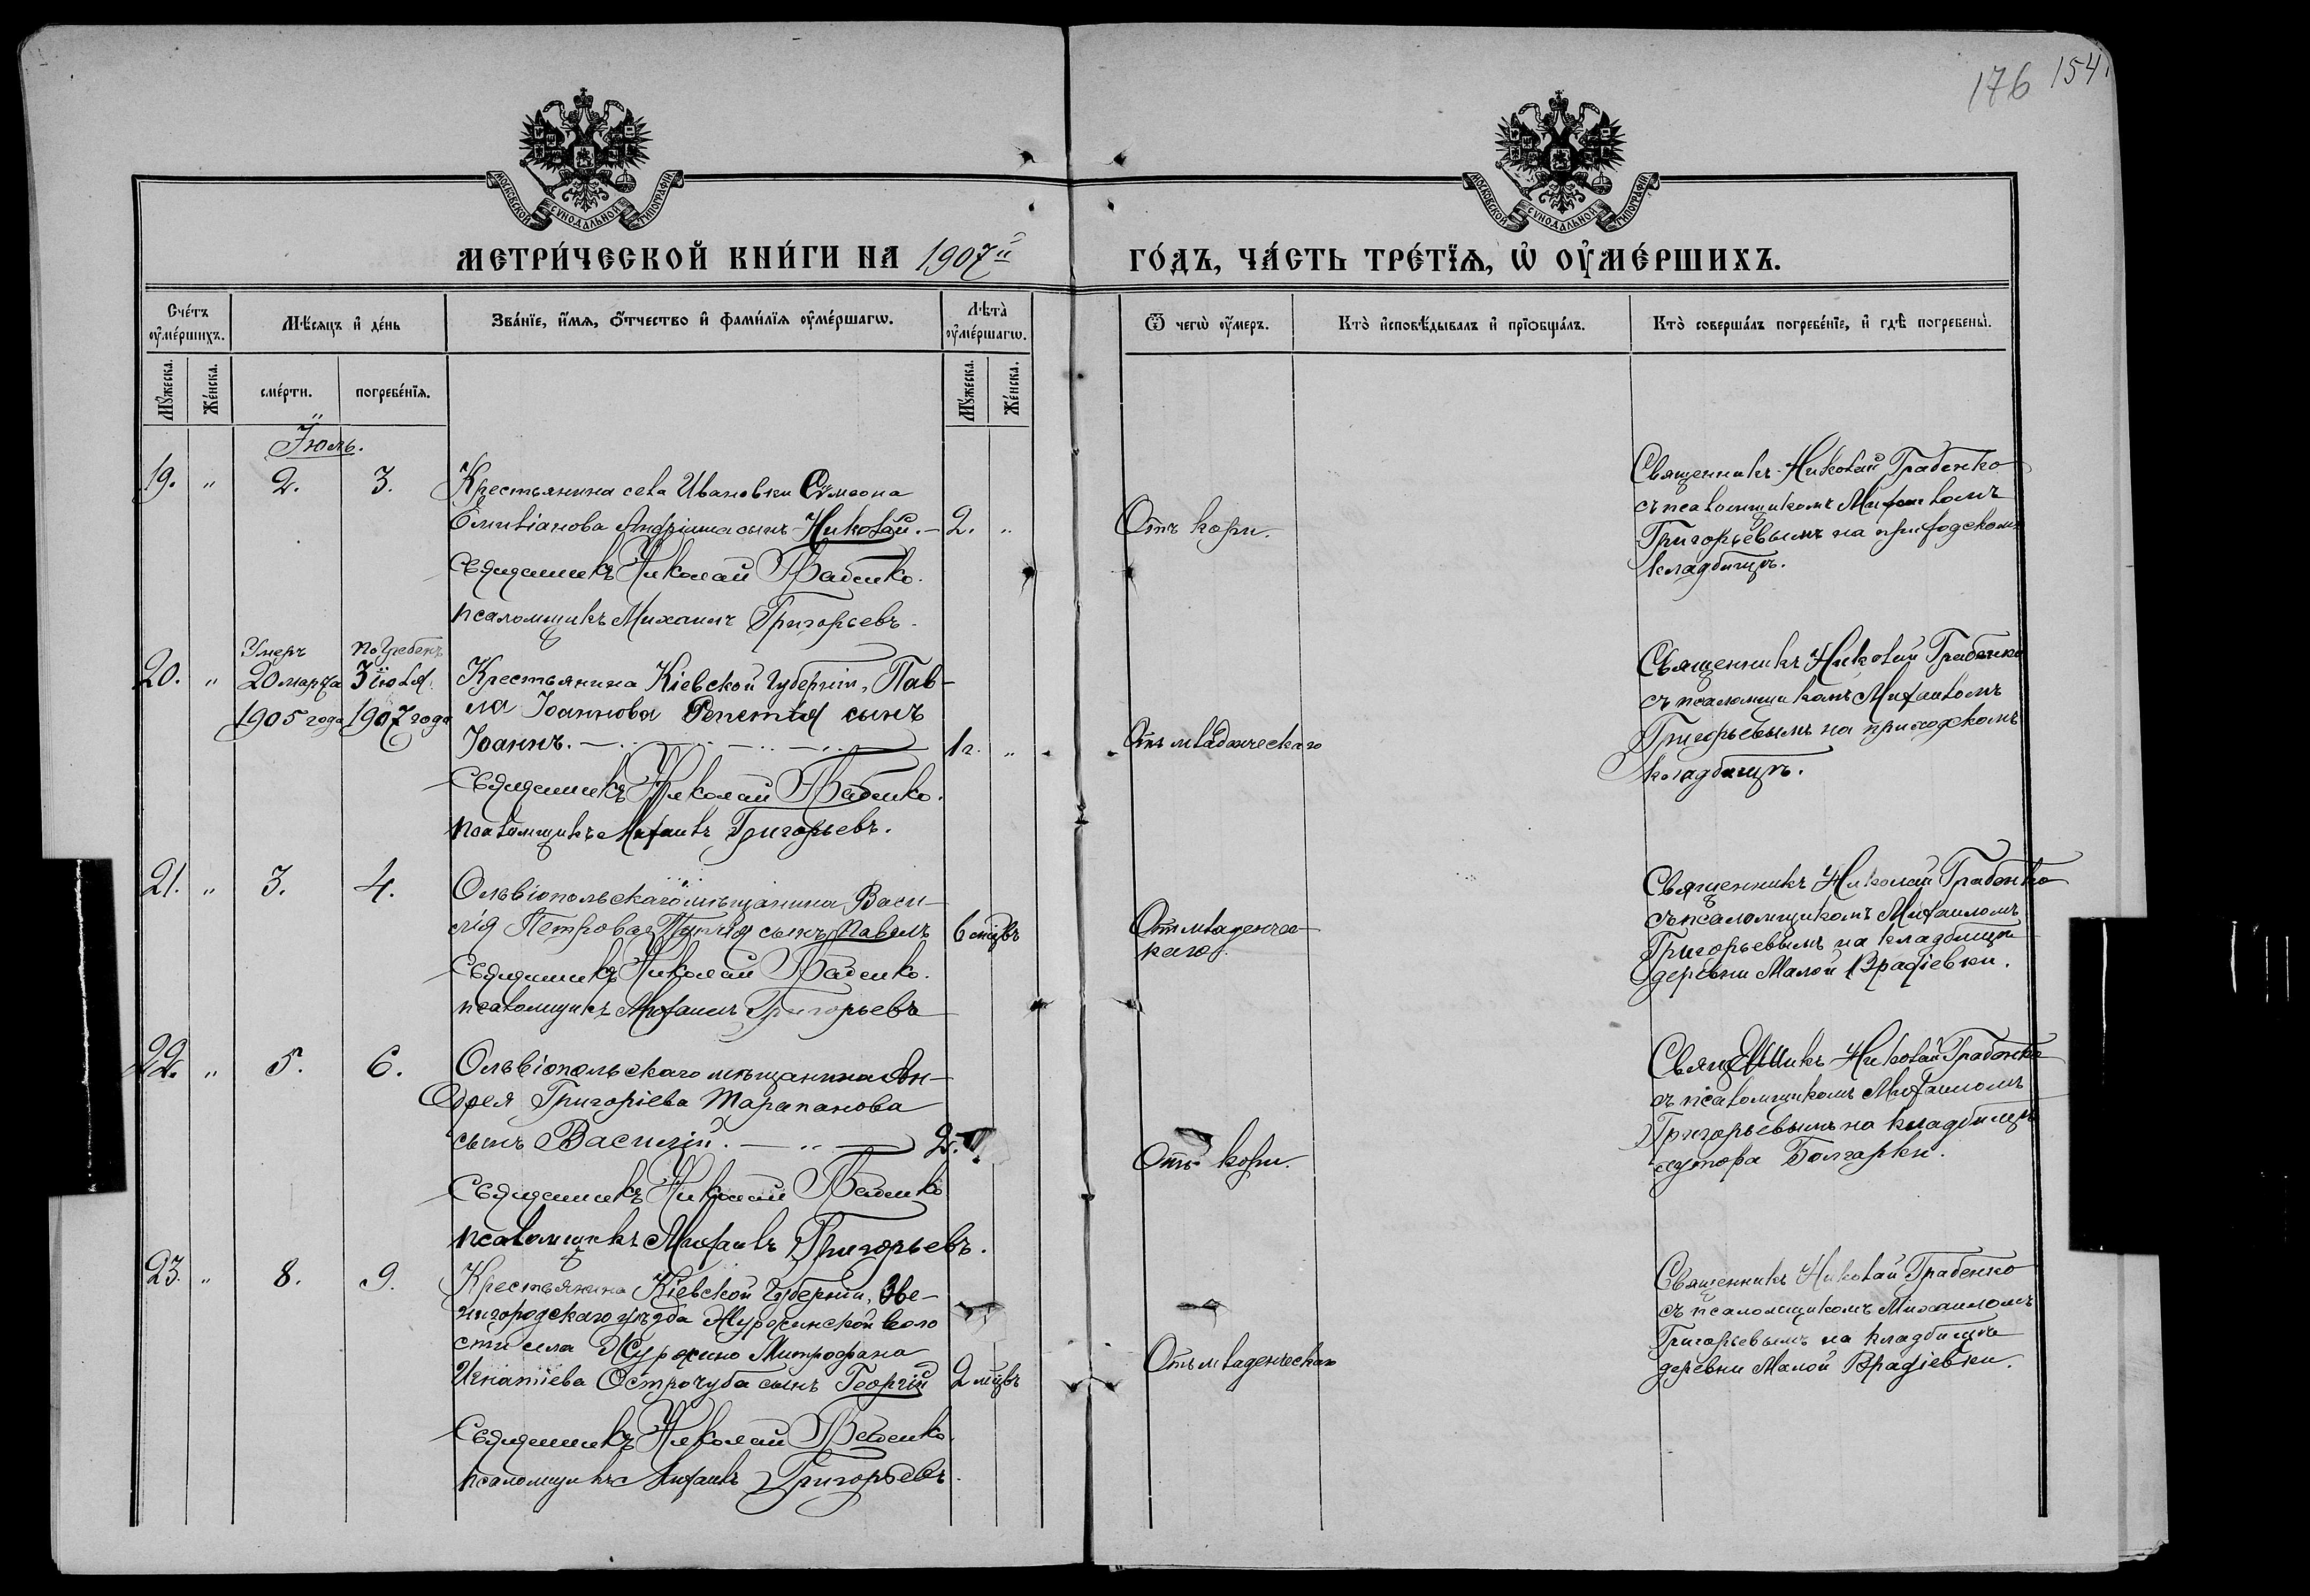 176 154
МОСКОВСКОЙ СУНОДАЛЬНОЙ ТИПОГРАФІИ
МОСКОВСКОЙ СУНОДАЛЬНОЙ ТИПОГРАФІИ
МЕТРИ́ЧЕСКОЙ КНИ́ГИ НА 1907й
ГО́ДЪ, ЧА́СТЬ ТРЕ́ТЇѦ, Ѡ҆ ОУ҆МЕ́РШИХЪ.
Сче́тъ оу҆ме́ршихъ.
Мѣ́сяцъ и҆ де́нь
Зва́нїе, и҆́мѧ, ѻ҆́тчество и҆ фами́лїѧ оу҆ме́ршагѡ.
Лѣта̀ оу҆ме́ршагѡ.
Ѿ чегѡ̀ оу҆́меръ.
Кто̀ и҆сповѣ́дывалъ и҆ прїѡбща́лъ.
Кто̀ соверша́лъ погребе́нїе, и҆ гдѣ̀ погребены̀.
Мꙋ́жеска.
Же́нска.
сме́рти.
погребе́нїѧ.
Мꙋ́жеска.
Же́нска.
Іюль.
19. " 2. 3. Крестьянина села Ивановки Сѵмеона
Емиліанова Андріяша сынъ Николай. - 2. "
Священникъ Николай Грабенко.
псаломщикъ Михаилъ Григорьевъ.
Отъ кори.
Священникъ Николай Грабенко
съ псаломщикомъ Михаиломъ
Григорьевымъ на приходскомъ
кладбищѣ.
Умеръ Погребенъ
20. " 20 марта 3 іюля Крестьянина Кіевской губерніи, Пав-
1905 года 1907 года ла Іоаннова сынъ
Іоаннъ. 1 г. "
Священникъ Николай Грабенко.
псаломщикъ Михаилъ Григорьевъ.
Отъ младенческаго
Священникъ Николай Грабенко
съ псаломщикомъ Михаиломъ
Григорьевымъ на приходскомъ
кладбищѣ.
21. " 3. 4. Ольвіопольскаго мѣщанина Васи-
лія Петрова сынъ Павелъ 6 мцвъ
Священникъ Николай Грабенко.
псаломщикъ Михаилъ Григорьевъ
Отъ младенчес-
каго.
Священникъ Николай Грабенко
съ псаломщикомъ Михаиломъ
Григорьевымъ на кладбищѣ
деревни Малой Врадіевки.
22. " 5. 6. Ольвіопольскаго мѣщанина Ан-
дрея Григоріева Тарапанова
сынъ Василій. 2.
Священникъ Николай Грабенко
псаломщикъ Михаилъ Григорьевъ.
Отъ кори.
Священникъ Николай Грабенко
съ псаломщикомъ Михаиломъ
Григорьевымъ на кладбищѣ
хутора Болгарки.
23. " 8. 9. Крестьянина Кіевской губерніи, Зве-
нигородскаго уѣзда Журжинской воло
сти села Журжино Митрофана
Игнатіева Острочуба сынъ Георгій 2 мцвъ
Священникъ Николай Грабенко.
псаломщикъ Михаилъ Григорьевъ.
Отъ младенческаго
Священникъ Николай Грабенко
съ псаломщикомъ Михаиломъ
Григорьевымъ на кладбищѣ
деревни Малой Врадіевки.